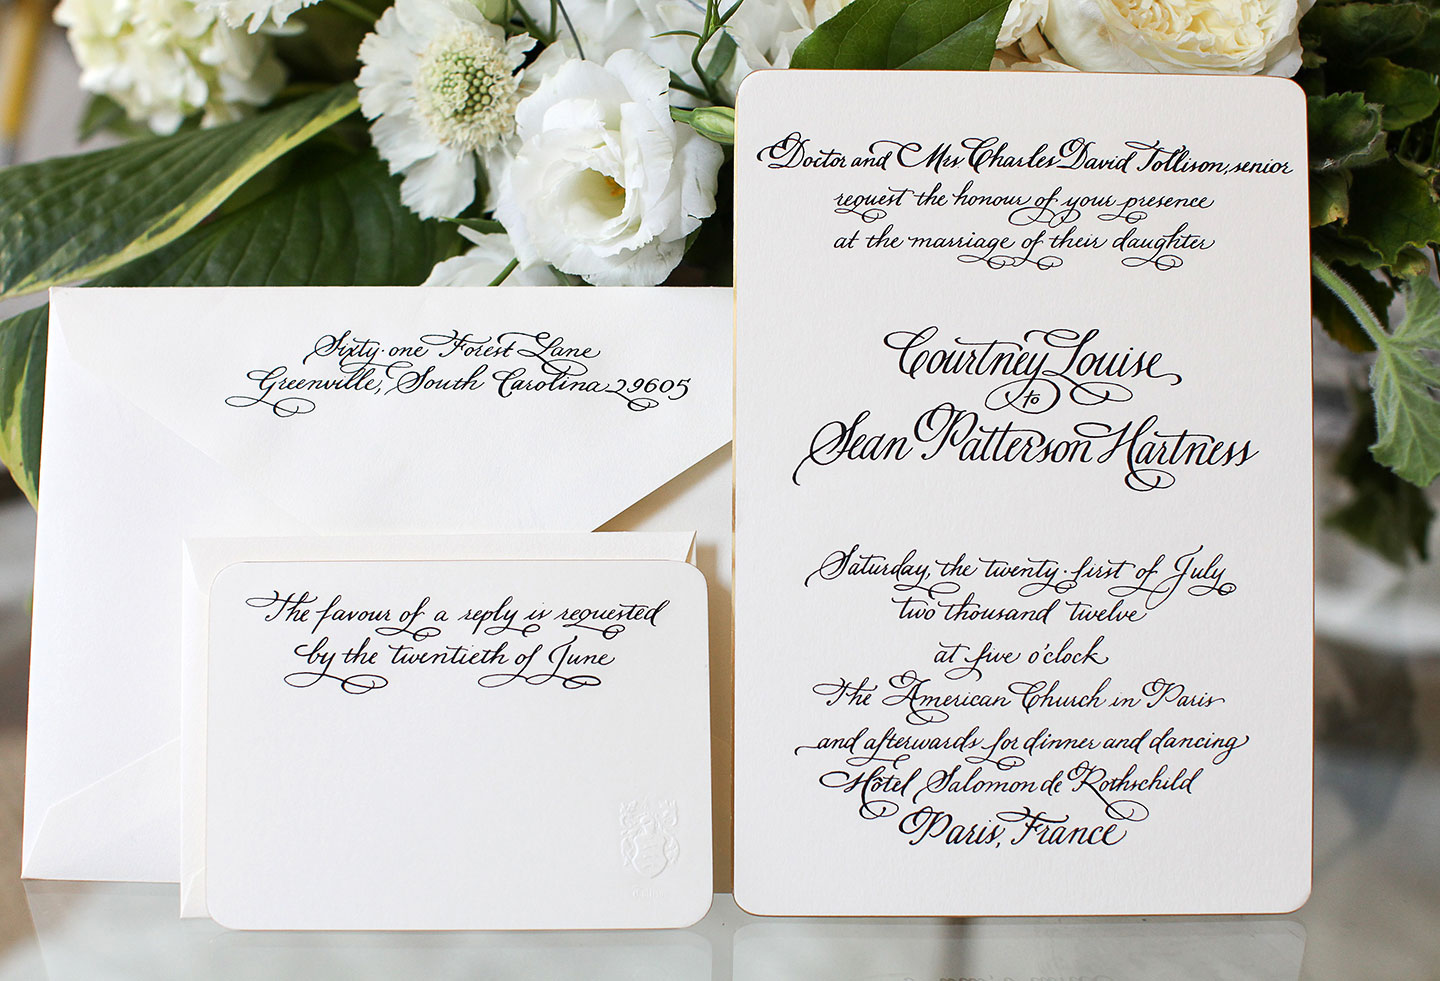 Sixty-one Forest Lane
Greenville, South Carolina 29605
The favour of a reply is requested
by the twentieth of June
Doctor and Mrs. Charles David Tollison, senior
request the honour of your presence
at the marriage of their daughter
Courtney Louise
to
Sean Patterson Hartness
Saturday, the twenty-first of July
two thousand twelve
at five o'clock
The American Church in Paris
and afterwards for dinner and dancing
Hôtel Salomon de Rothschild
Paris, France